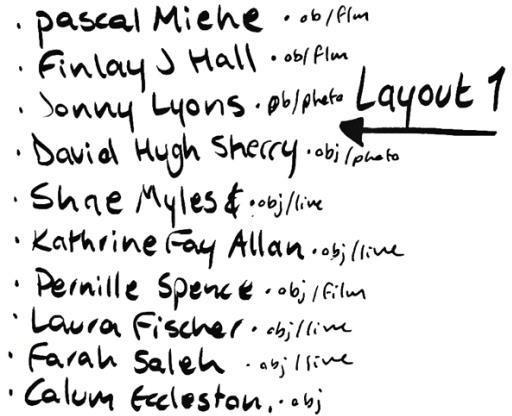 · pascal Miehe · ob/flm
· Finlay J Hall · ob/flm
· Jonny Lyons · ob/photo
Layout 1
· David Hugh Sherry · obj/photo
· Shae Myles & · obj/live
· Kathrine Fay Allan · obj/live
· Pernille Spence · obj/film
· Laura Fischer · obj/live
· Farah Saleh · obj/live
· Calum Eccleston. · obj